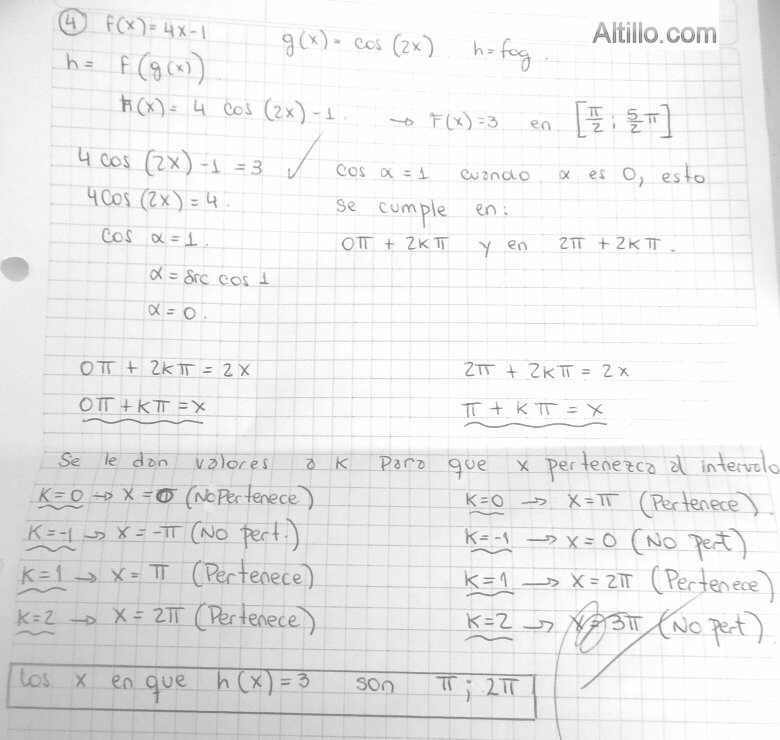 ④ F(x)=4x-1 g(x)= cos (2x) h=fog. Altillo.com
h= F(g(x))
h(x)= 4 cos (2x)-1. → F(x)=3 en [π/2 ; 5/2 π]
4 cos (2x) -1 =3 ✓ cos α=1 cuando α es 0, esto
4cos (2x)=4. se cumple en:
cos α=1. 0π + 2kπ y en 2π + 2kπ.
α= arc cos 1
α=0.
0π + 2kπ = 2x 2π + 2kπ = 2x
0π+kπ=x π + kπ = x
Se le dan valores a K para que x pertenezca al intervalo
K=0 → x=0 (No Pertenece) K=0 → x=π (Pertenece).
K=-1 → x=-π (No pert.) K=-1 → x=0 (No pert)
K=1 → x= π (Pertenece) K=1 → x=2π (Pertenece)
K=2 → x= 2π (Pertenece) K=2 → x=3π (No pert).
Los x en que h(x)=3 son π; 2π